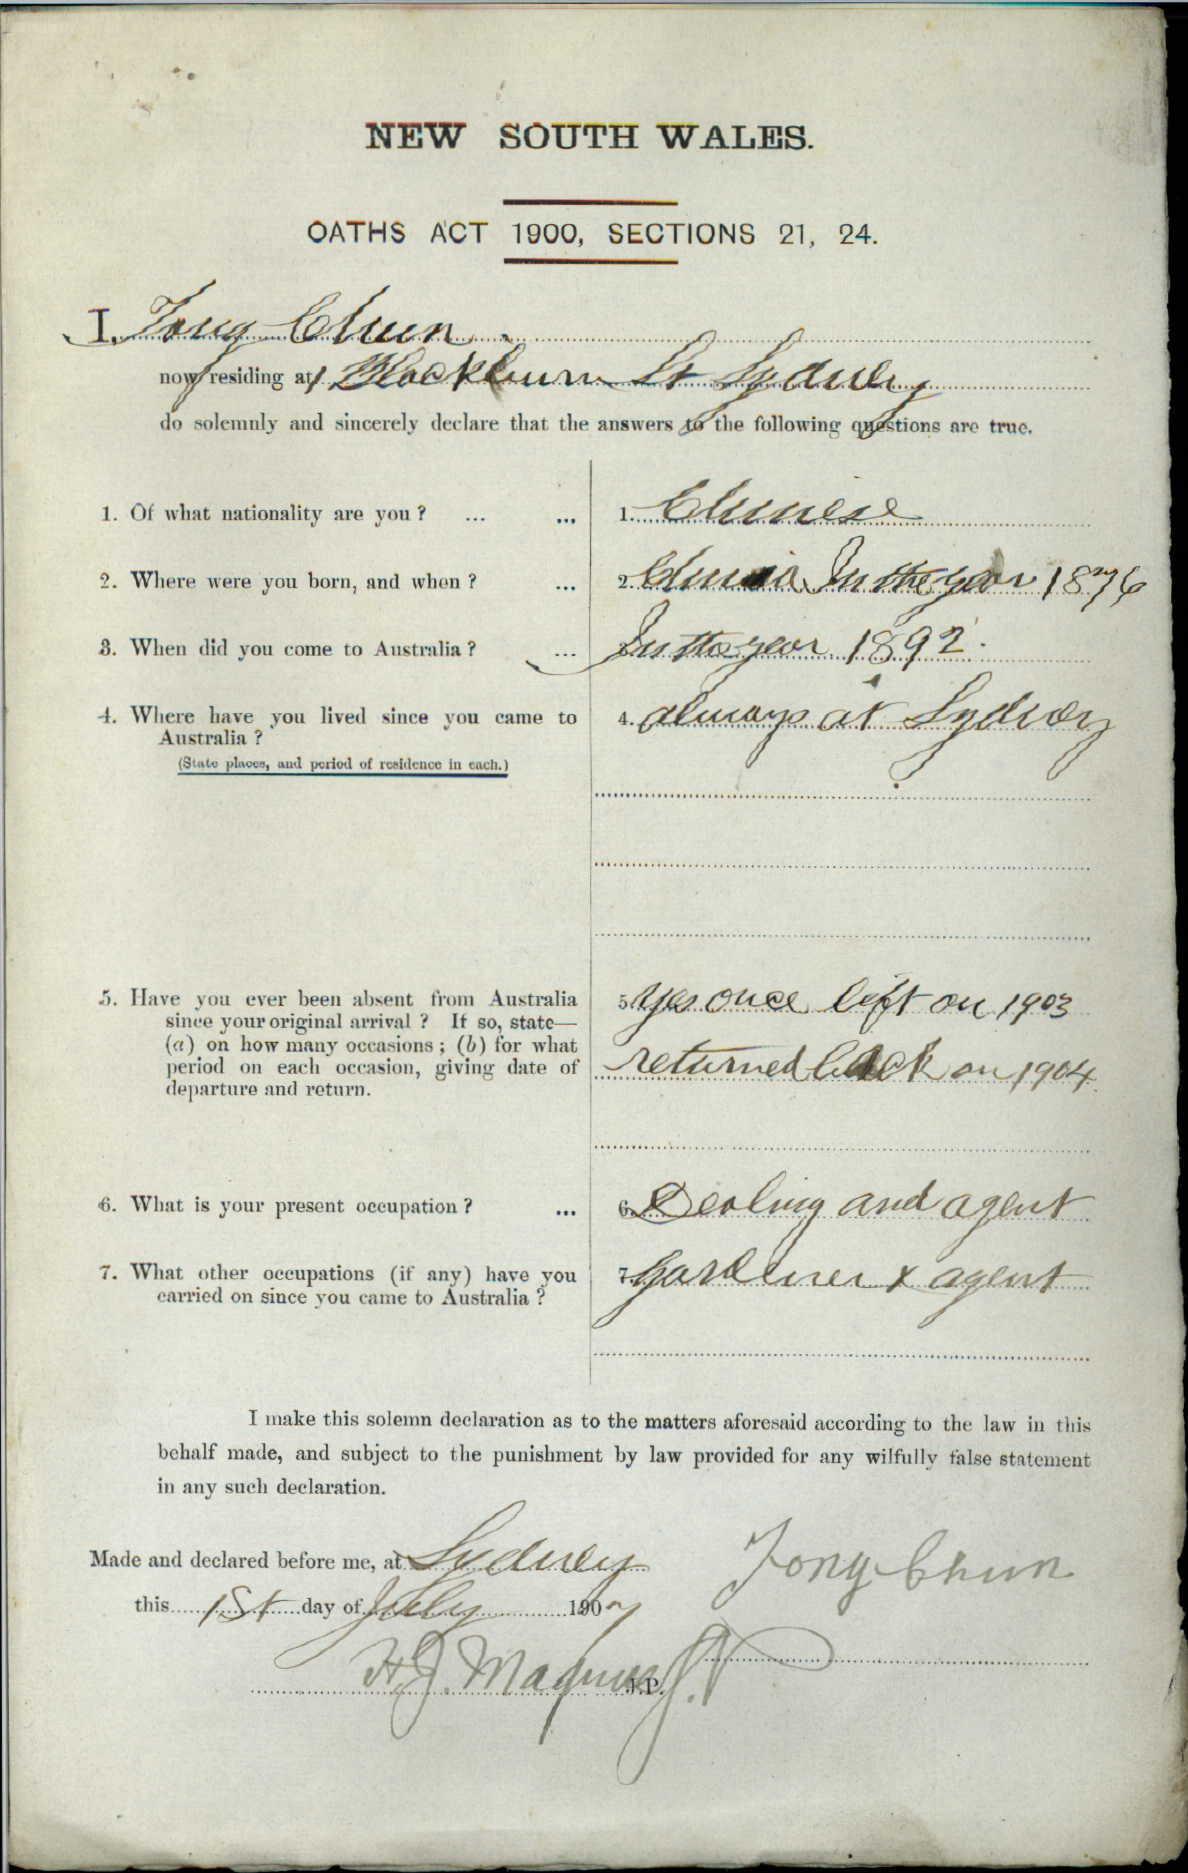 NEW SOUTH WALES.
OATHS ACT 1900, SECTIONS 21, 24.
I, Tong Chun
now residing at 1 Blackburn St Sydney
do solemnly and sincerely declare that the answers to the following questions are true.
1. Of what nationality are you? ... ... 1. Chinese
2. Where were you born, and when? ... 2. China In the year 1876
3. When did you come to Australia? ... In the year 1892.
4. Where have you lived since you came to 4. always at Sydney
Australia?
(State places, and period of residence in each.)
5. Have you ever been absent from Australia 5. Yes once left on 1903
since your original arrival? If so, state—
(a) on how many occasions; (b) for what returned back on 1904
period on each occasion, giving date of
departure and return.
6. What is your present occupation? ... 6. Dealing and agent
7. What other occupations (if any) have you 7. Gardener & agent
carried on since you came to Australia?
I make this solemn declaration as to the matters aforesaid according to the law in this
behalf made, and subject to the punishment by law provided for any wilfully false statement
in any such declaration.
Made and declared before me, at Sydney Tong Chun
this 1st day of July 1907
H.J. Magnus J.P.
J.P.